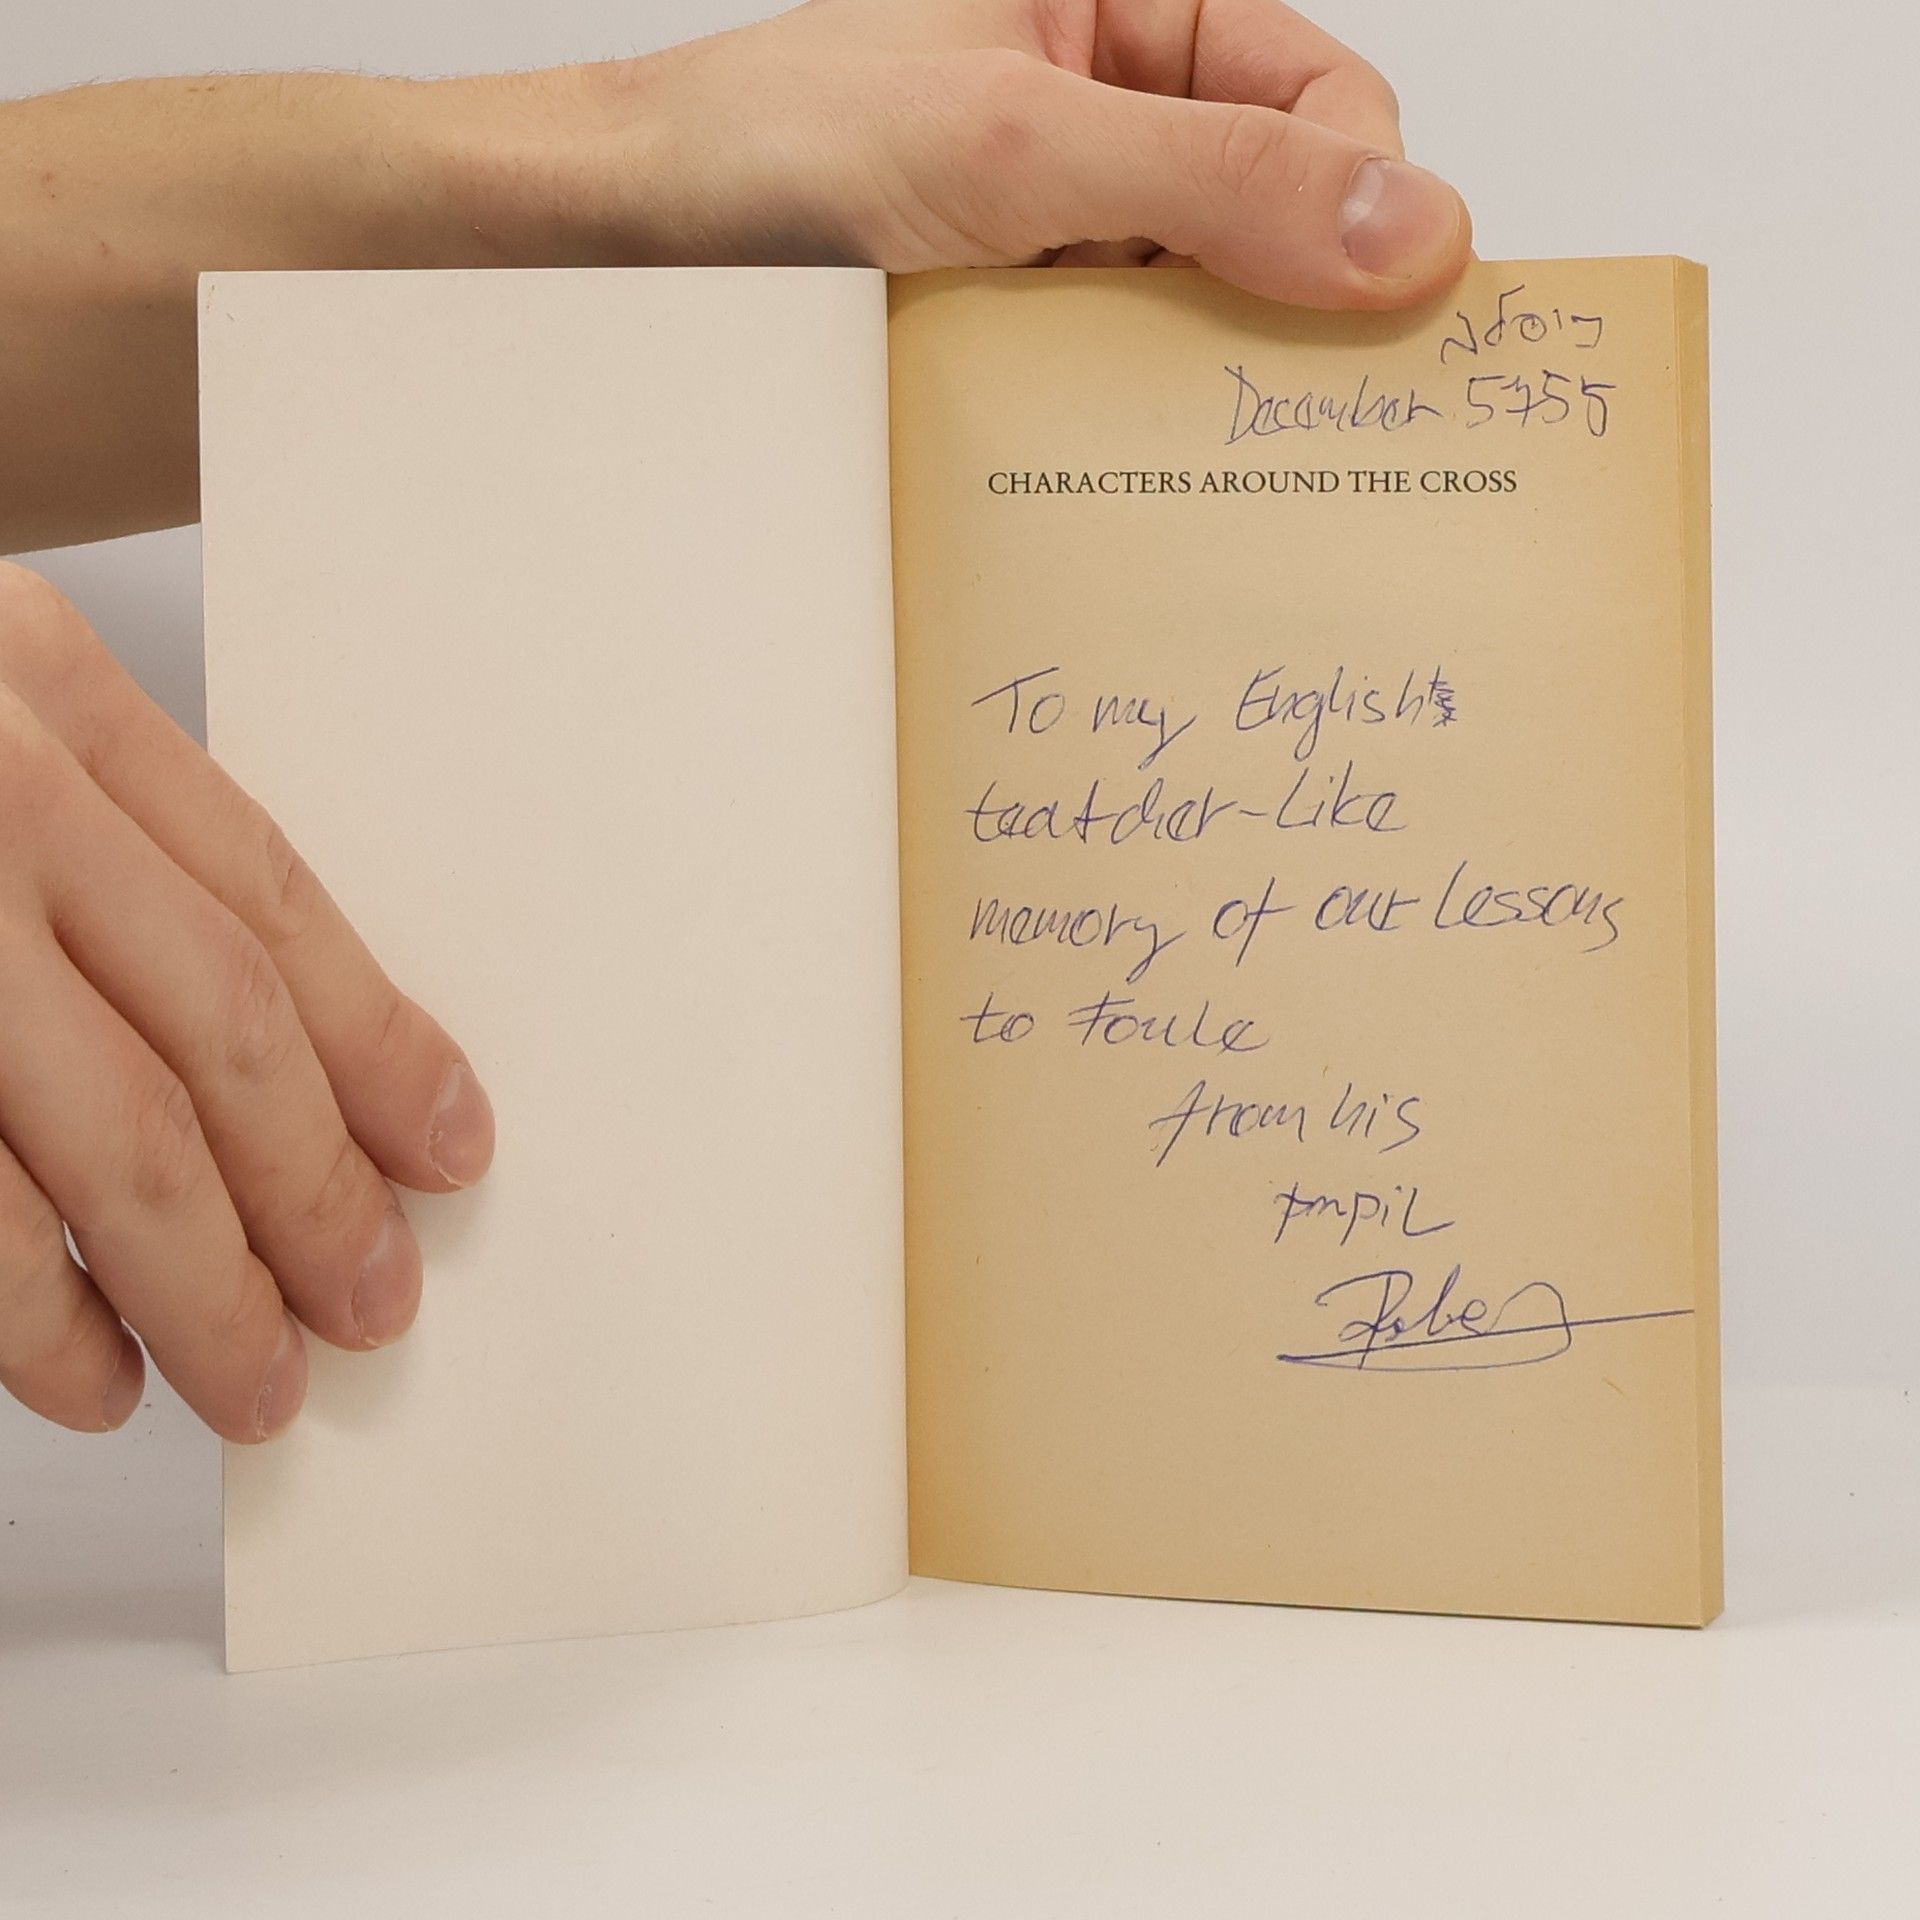 December 5755
CHARACTERS AROUND THE CROSS
To my English
teatcher-Like
memory of our Lessons
to Foule
from his
pupiL